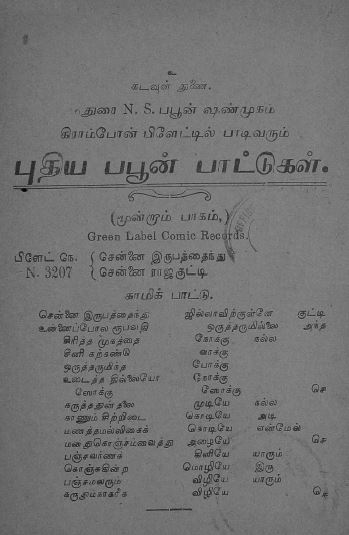 உ
கடவுள் துணை.
துரை N. S. பபூன் ஷண்முகம்
கிராம்போன் பிளேட்டில் பாடிவரும்
புதிய பபூன் பாட்டுகள்.
(மூன்றும் பாகம்,)
Green Label Comic Records.
பிளேட் நெ. { சென்னை இருபத்தைந்து
N. 3207 { சென்னை ராஜகுட்டி
காமிக் பாட்டு.
சென்னை இருபத்தைந்து ஜில்லாவிற்குள்ளே குட்டி
உன்னைப்போல ரூபவதி ஒருத்தருமில்லை அந்த
சிரித்த முகத்தை நோக்கு நல்ல
சீனி கற்கண்டு வாக்கு
ஒருத்தருமிந்த போக்கு
உடைத்த தில்லையோ நோக்கு
ஸோக்கு ஸோக்கு செ
கருத்ததுன்தலை முடியே நல்ல
காணும் சிற்றிடை கொடியே அடி
மணத்தமல்லிகைக் கொடியே என்மேல்
மனதுகொஞ்சம்வைத்து அழையே செ
பஞ்சவர்ணக் கிளியே யாரும்
கொஞ்சுகின்ற மொழியே இரு
பஞ்சமலரும் விழியே யாரும்
விழியே செ